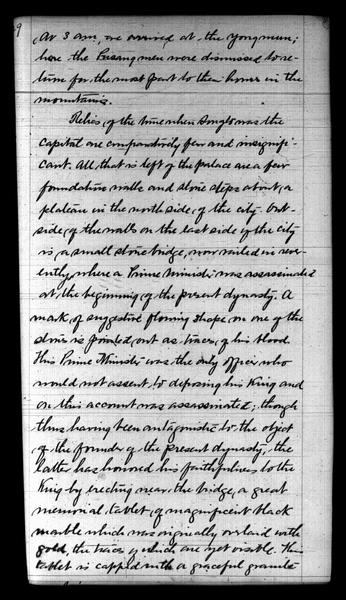 9
At 3 am, we arrived at the yongmun;
here the Pusang men were dismissed to re-
turn for the most part to their homes in the
mountains.
Relics, of the time when Songdo was the
capital are comparatively few and insignifi-
cant. All, that is left of the palace are a few
foundation walls and stone steps about, a
plateau in the north side, of the city. Out-
side, of the walls on the east side of the city
is, a small stone bridge, now railed in rever-
ently, where a Prime Minister was assassinated
at the beginning, of the present dynasty. A
mark, of suggestive flowing shape, on one of the
stones is pointed out as, traces, of his blood.
This Prime Minister was the only officer who
would not assent, to deposing his King and
on this account was assassinated; though
thus having been antagonistic to the object
of the founder, of the present dynasty, the
latter has honored his faithfulness to the
King by erecting near, the bridge, a great
memorial tablet, of magnificent black
marble which was originally overlaid with
gold, the traces of which are yet visible. The
tablet is capped with a graceful granite